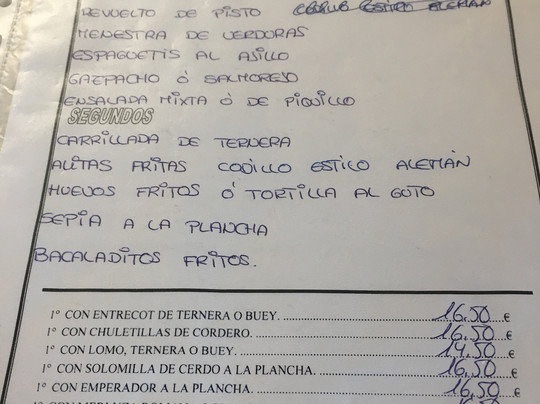 REVUELTO DE PISTO CODILLO ESTILO ALEMÁN
MENESTRA DE VERDURAS
ESPAGUETIS AL AJILLO
GAZPACHO Ó SALMOREJO
ENSALADA MIXTA Ó DE PIQUILLO
SEGUNDOS
CARRILLADA DE TERNERA
ALITAS FRITAS CODILLO ESTILO ALEMÁN
HUEVOS FRITOS Ó TORTILLA AL GUTO
SEPIA A LA PLANCHA
BACALADITOS FRITOS.
1º CON ENTRECOT DE TERNERA O BUEY. 16,50 €
1º CON CHULETILLAS DE CORDERO. 16,50 €
1º CON LOMO, TERNERA O BUEY. 14,50 €
1º CON SOLOMILLA DE CERDO A LA PLANCHA. 16,50 €
1º CON EMPERADOR A LA PLANCHA. 16,50 €